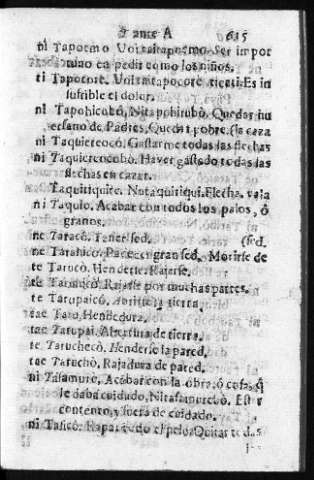 T ante A 635
ni Tapoemo Ser impor
tuno en pedir como los niños.
ti Tapocore. Es in
sufrible el dolor.
ni Tapohicobò, Nitapohirubò. Quedar hu
erfano de Padres, Quedar pobre. (la caza
ni Taquiereocò. Gastarme todas las flechas
ni Taquiereocobò. Haver gastado todas las
flechas en cazar.
Taquiriquire. Notaquiriqui. Flecha, vaja
ni Taquio. Acabar con todos los palos, ò
granos.
ne Taracò. Tener sed. (sed.
ne Padecer gran sed. Morirse de
te Tarucò. Henderse. Rajarse.
te Rajarse por muchas partes.
te Tarupaicò. Abrirse la tierra.
tae Taro, Hendedura.
tae Tarupai. Abertura de tierra.
te Tarucheco. Henderse la pared.
tae Taruchò. Rajadura de pared.
ni Tasamurè. Acabar con la obra, ò cosa q̃
le daba cuidado, Nitasamurebò. Estar
contento, y fuera de cuidado.
ni Tasicò. Rapar todo el pelo. Quitar todas